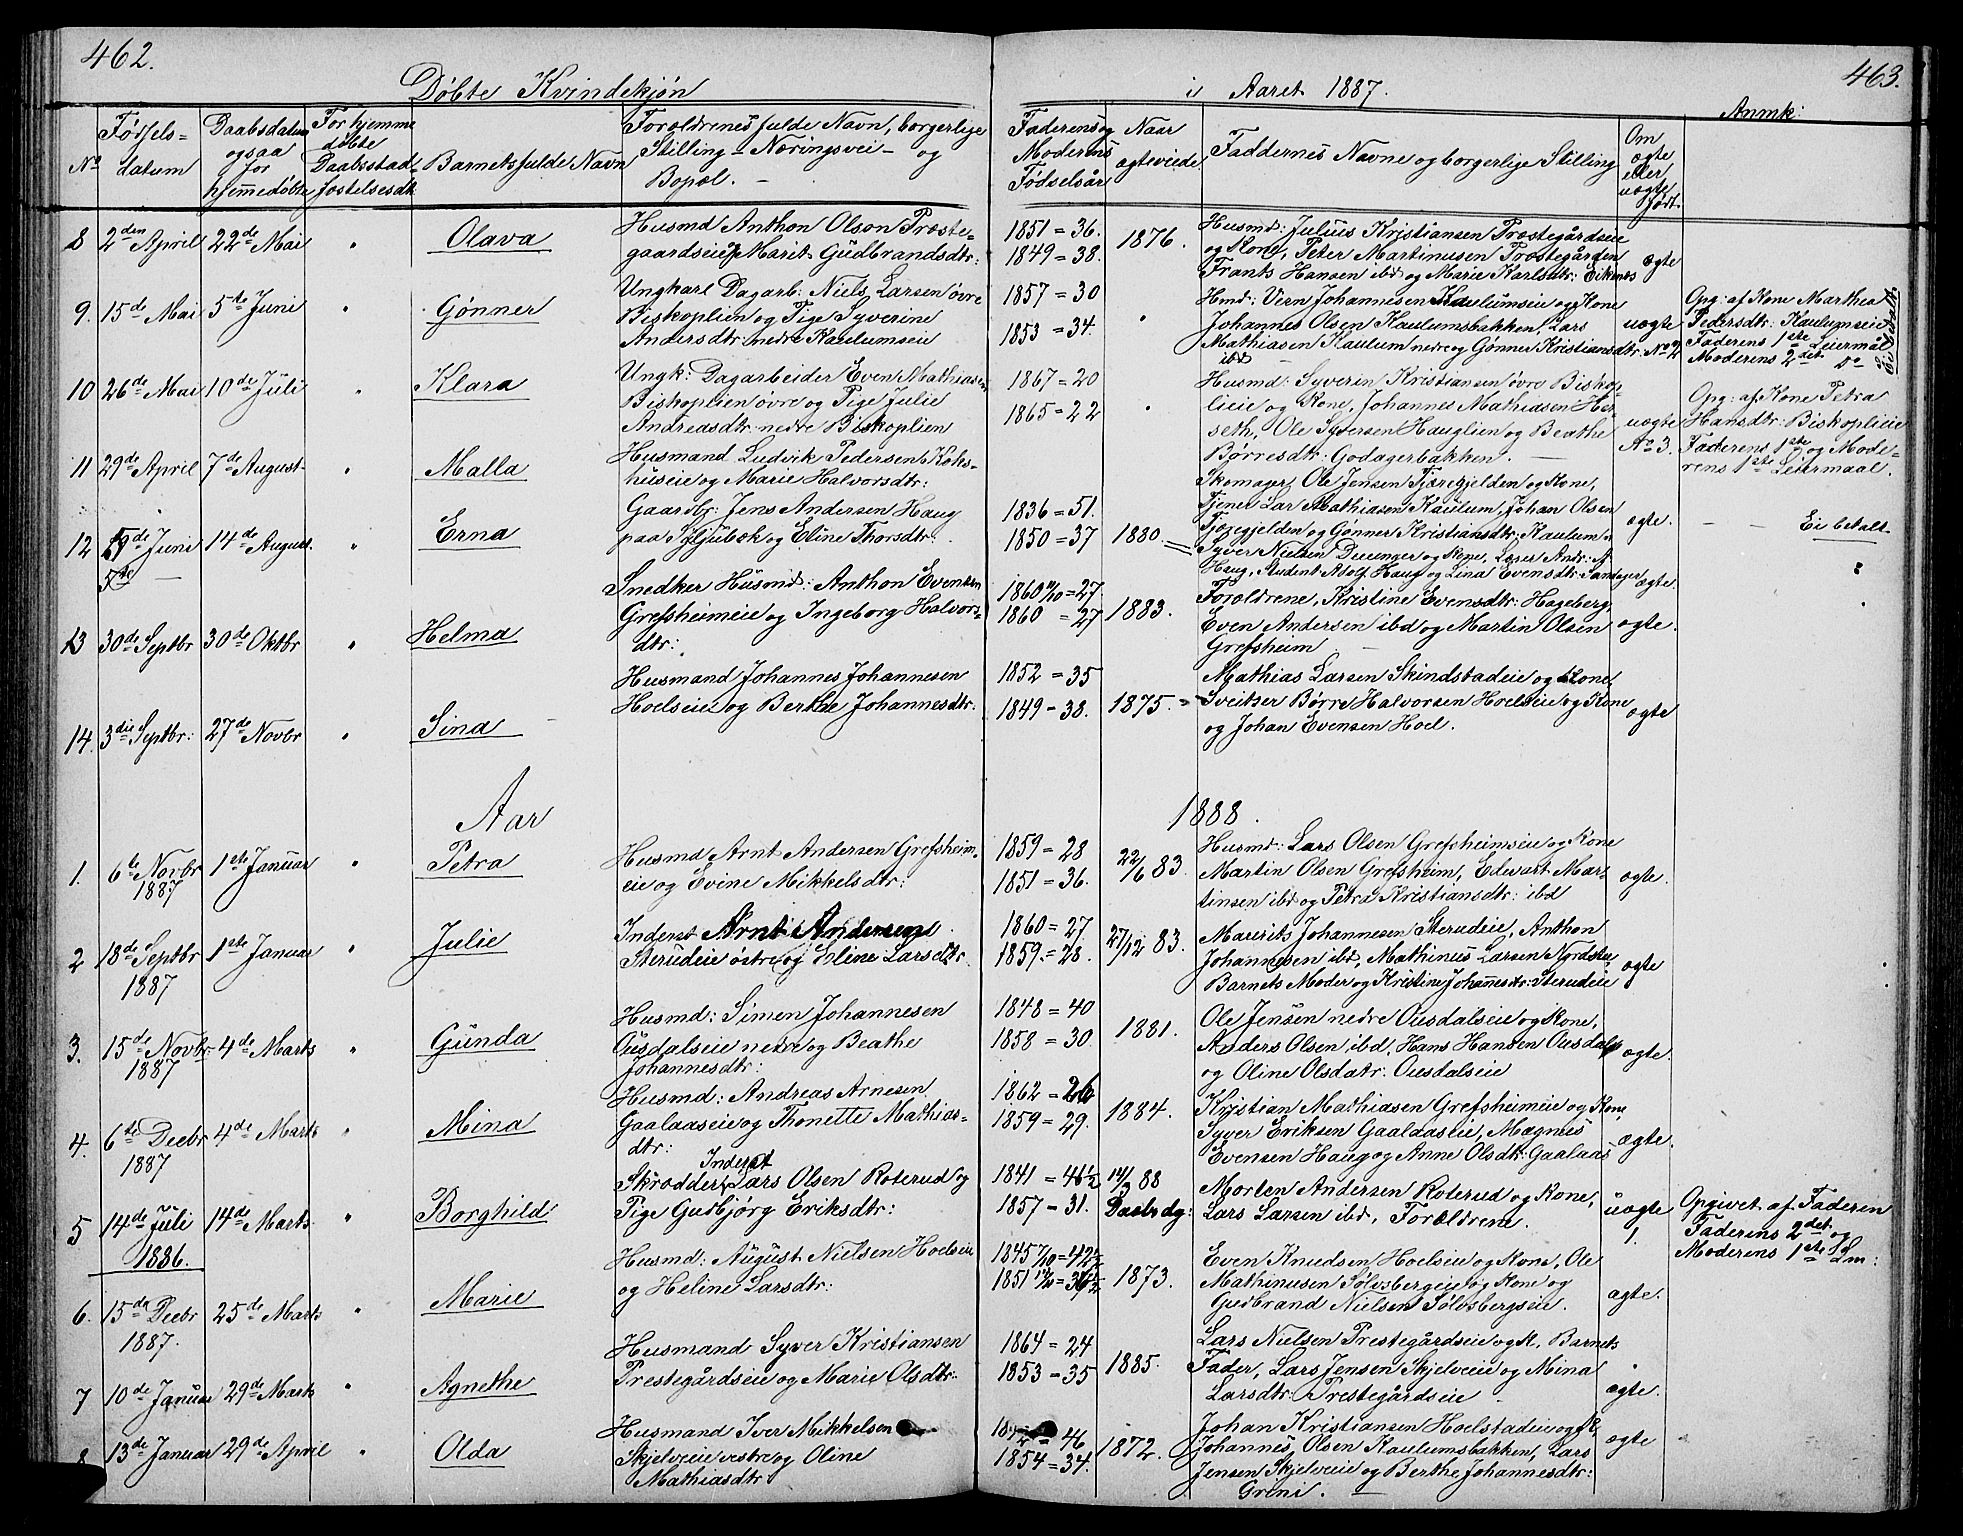 462.
Døbte Kvindekjøn
No
Fødsels=
datum
Daabsdatum
ogsaa
for
hjemmedøbte
For hjemme
døbte
Daabsstad-
fæstelsesdt.
Barnets fulde Navn
Forældrenes fulde Navn, borgerlige
Stilling - Næringsvei - og
Bopæl. -
8 2den April 22de Mai " Olava
Husmd Anthon Olsen Præste-
gaardseie og Marit Gudbrandsdtr:
9. 15de Mai 5te Juni " Gønner
Ungkarl Dagarb: Niels Larsen øvre
Biskoplien og Pige Syverine
Andersdtr nedre Kaulumseie
10 26de Mai 10de Juli " Klara
Ungk: Dagarbeider Even Mathiasen
Biskoplien øvre og Pige Julie
Andreasdtr nedre Biskoplien
11 29de April 7de August " Malla
Husmand Ludvik Pedersen Koks-
huseie og Marie Halvorsdtr:
12 Juni 14de August. " Erna
5te -
Gaardbr: Jens Andersen Haug
paa og Eline Thorsdtr.
13 30de Septbr 30de Oktbr " Helma
Snedker Husmd: Anthon Evensen
Grefsheimeie og Ingeborg Halvors-
dtr:
14. 3die Septbr: 27de Novbr " Sina
Husmand Johannes Johannesen
Hoelseie og Berthe Johannesdtr:
Aar
1. 6te Novbr 1ste Januar " Petra
1887
Husmd Arnt Andersen Grefsheim-
eie og Evine Mikkelsdtr:
2 18de Septbr 1ste Januar " Julie
1887
Inderst Arnt Andersen
Sterudeie østre og Eline Larsdtr.
3. 15de Novbr 4de Marts " Gunda
1887
Husmd: Simen Johannesen
Ousdalseie nedre og Beathe
Johannesdtr:
4. 6te Decbr 4de Marts " Mina
1887
Husmd: Andreas Arnesen
Gaalaaseie og Thonette Mathias-
dtr:
5 14de Juli 14de Marts " Borghild
1886.
Inderst
Skrædder Lars Olsen Roterud og
Pige Gudbjørg Eriksdtr:
6. 15de Decbr 25de Marts " Marie
1887.
Husmd: August Nielsen Hoelseie
og Heline Larsdtr:
7 10de Januar 29de Marts " Agnethe
Husmand Syver Kristiansen
Prestegårdseie og Marie Olsdtr:
8 13de Januar 29de April " Olda
Husmand Iver Mikkelsen
Skjelveie vestre og Oline
Mathiasdtr
463.
i Aaret 1887.
Faderens og
Moderens
Fødselsår
Naar
ægteviede
Faddernes Navne og borgerlige Stilling
Om
ægte
eller
uægte
født.
Anmk:
1851 = 36.
1849 = 38.
1876.
Husmd: Julius Kristiansen Præstegårdseie
og Kone, Peter Martinusen Præstegården
Frants Hansen ibd og Marie Karlsdtr: Eiknes
ægte
1857 = 30
1853 = 34.
"
Hmd: Johannesen Kaulumseie og Kone
Johannes Olsen Kaulumsbakken, Lars
Mathiasen Kaulum nedre og Gønner Kristiansdtr:
ibd
uægte
No 2
Opg: af Kone Marthea
Pedersdtr: Kaulumseie
Faderens 1ste Leiermål
Moderens 2det Do
Ei betalt.
1867 = 20
1865 = 22
"
Husmd: Syverin Kristiansen øvre Biskop-
lieie og Kone, Johannes Mathiasen Her-
seth, Ole Syversen Hauglien og Beathe
Børresdtr: Godagerbakken. -
uægte
No 3.
Opg: af Kone Petra
Hansdtr: Biskoplieie
Faderens 1ste og Mode-
rens 1ste Leiermaal.
1836 = 51.
1850 = 37
1880.
Skomager, Ole Jensen Tjæregjelden og Kone,
Tjener Lars Mathiasen Kaulum, Johan Olsen
Tjæregjelden og Gønner Kristiansdtr: Kaulum n
ægte. - - Ei betalt.
Syver Nielsen og Kone, Læser Andr: A
Haug, Student Adolf Haug og Lina Evensdtr: Sandager
ægte. "
1860 = 27
1860 = 27
1883.
Forældrene, Kristine Evensdtr: Hageberg,
Even Andersen ibd og Martin Olsen
Grefsheim -
ægte. "
1852 = 35
1849 = 38.
1875. =
Mathias Larsen Skindstadeie og Kone,
Sveitser Børre Halvorsen Hoelseie og Kone
og Johan Evensen Hoel.
ægte
1888.
1859 = 28
1851 = 36.
22/6 83.
Husmd: Lars Olsen Grefsheimseie og Kone
Martin Olsen Grefsheim, Edvart Mar-
tinsen ibd og Petra Kristiansdtr: ibd
ægte.
1860 = 27
1859 = 28.
27/12 83.
Maurits Johannesen Sterudeie, Anthon
Johannesen ibd, Mathinus Larsen
Barnets Moder og Kristine Johannesdtr: Sterudeie
ægte
1848 = 40
1858 = 30.
1881.
Ole Jensen nedre Ousdalseie og Kone,
Anders Olsen ibd, Hans Hansen Ousdal
og Oline Olsdatr: Ousdalseie
ægte.
1862 = 26
1859 = 29.
1884.
Kristian Mathiasen Grefsheimeie og Kone,
Syver Eriksen Gaalaaseie, Magnus
Evensen Haug og Anne Olsdtr: Gaalaas
ægte.
1841 = 46 ½
1857 - 31.
88
Daabsdg:
Morten Andersen Roterud og Kone,
Lars Larsen ibd, Forældrene.
uægte
1.
Opgivet af Faderen
Faderens 2det og
Moderens 1ste Lm:
1845 = 42 ½
1851 = 36 ½
1873.
Even Knudsen Hoelseie og Kone, Ole
Mathinusen Sølvsbergeie og Kone og
Gudbrand Nielsen Sølvsbergseie.
ægte.
1864 = 24
1853 = 35
1885.
Lars Nielsen Prestegårdseie og K, Barnets
Fader, Lars Jensen Skjelveie og Mina
Larsdtr: Prestegårdseie -
ægte.
= 46
1854 = 34.
1872.
Johan Kristiansen Hoelstadeie og K
Johannes Olsen Kaulumsbakken, Lars
Jensen Skjelveie og Berthe Johannesdtr:
Greni. -
ægte